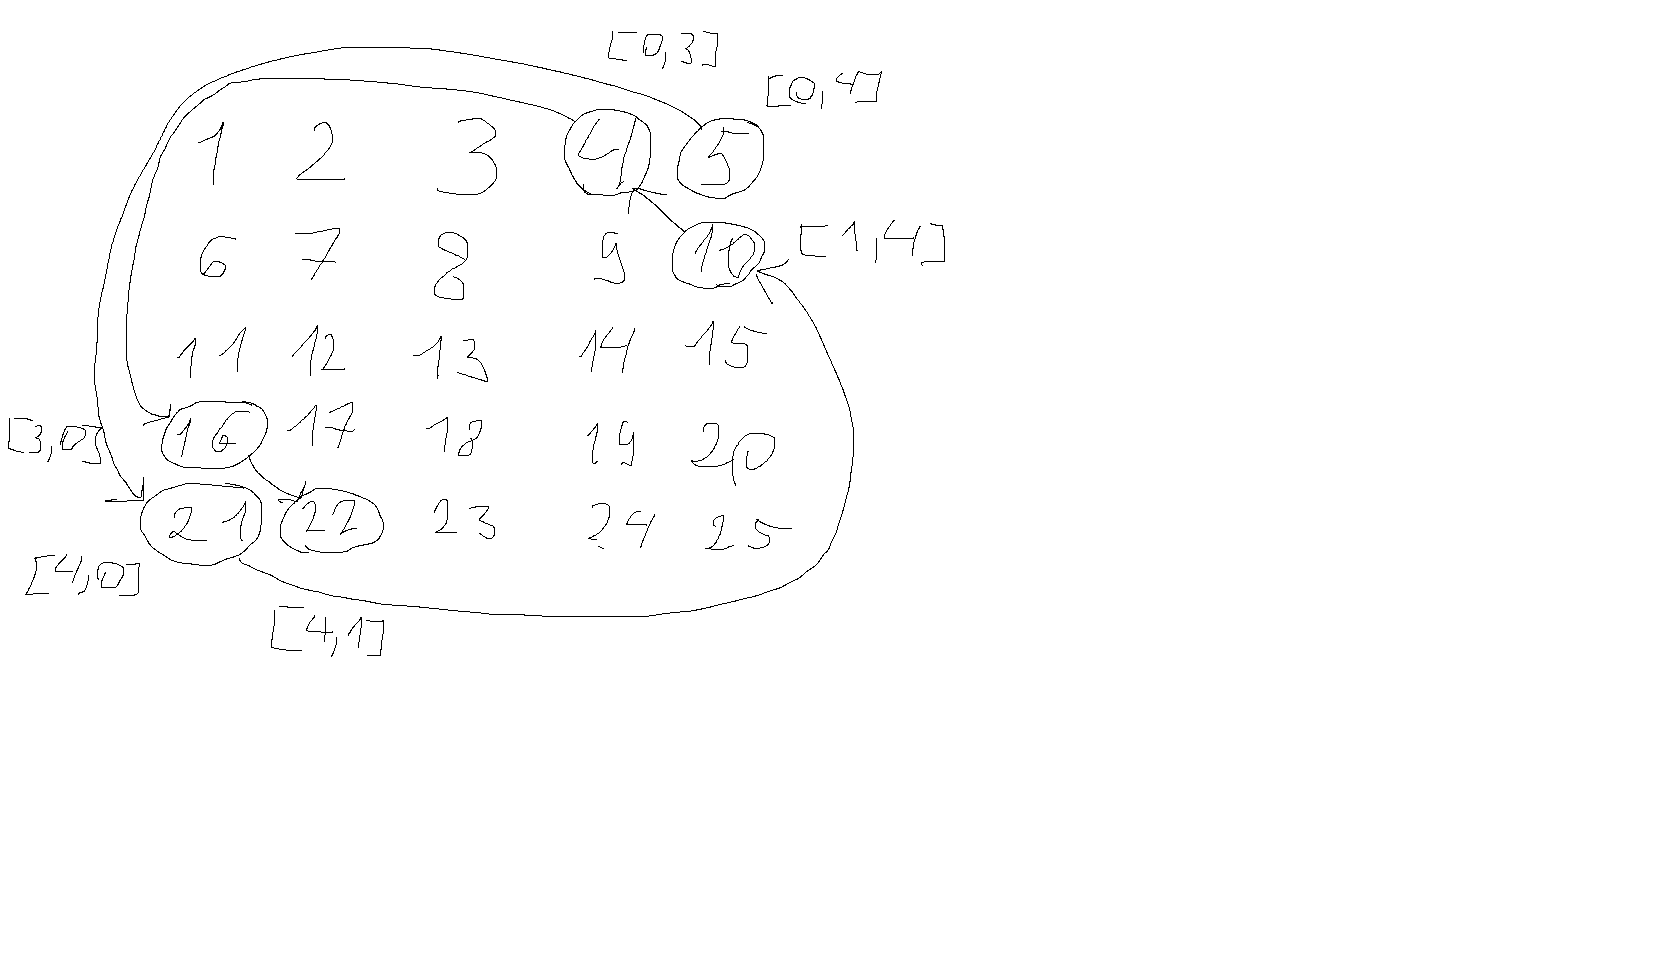 [0,3]
[0,4]
1 2 3 4 5
6 7 8 9 10 [1,4]
11 12 13 14 15
[3,0] 16 17 18 19 20
21 22 23 24 25
[4,0]
[4,1]